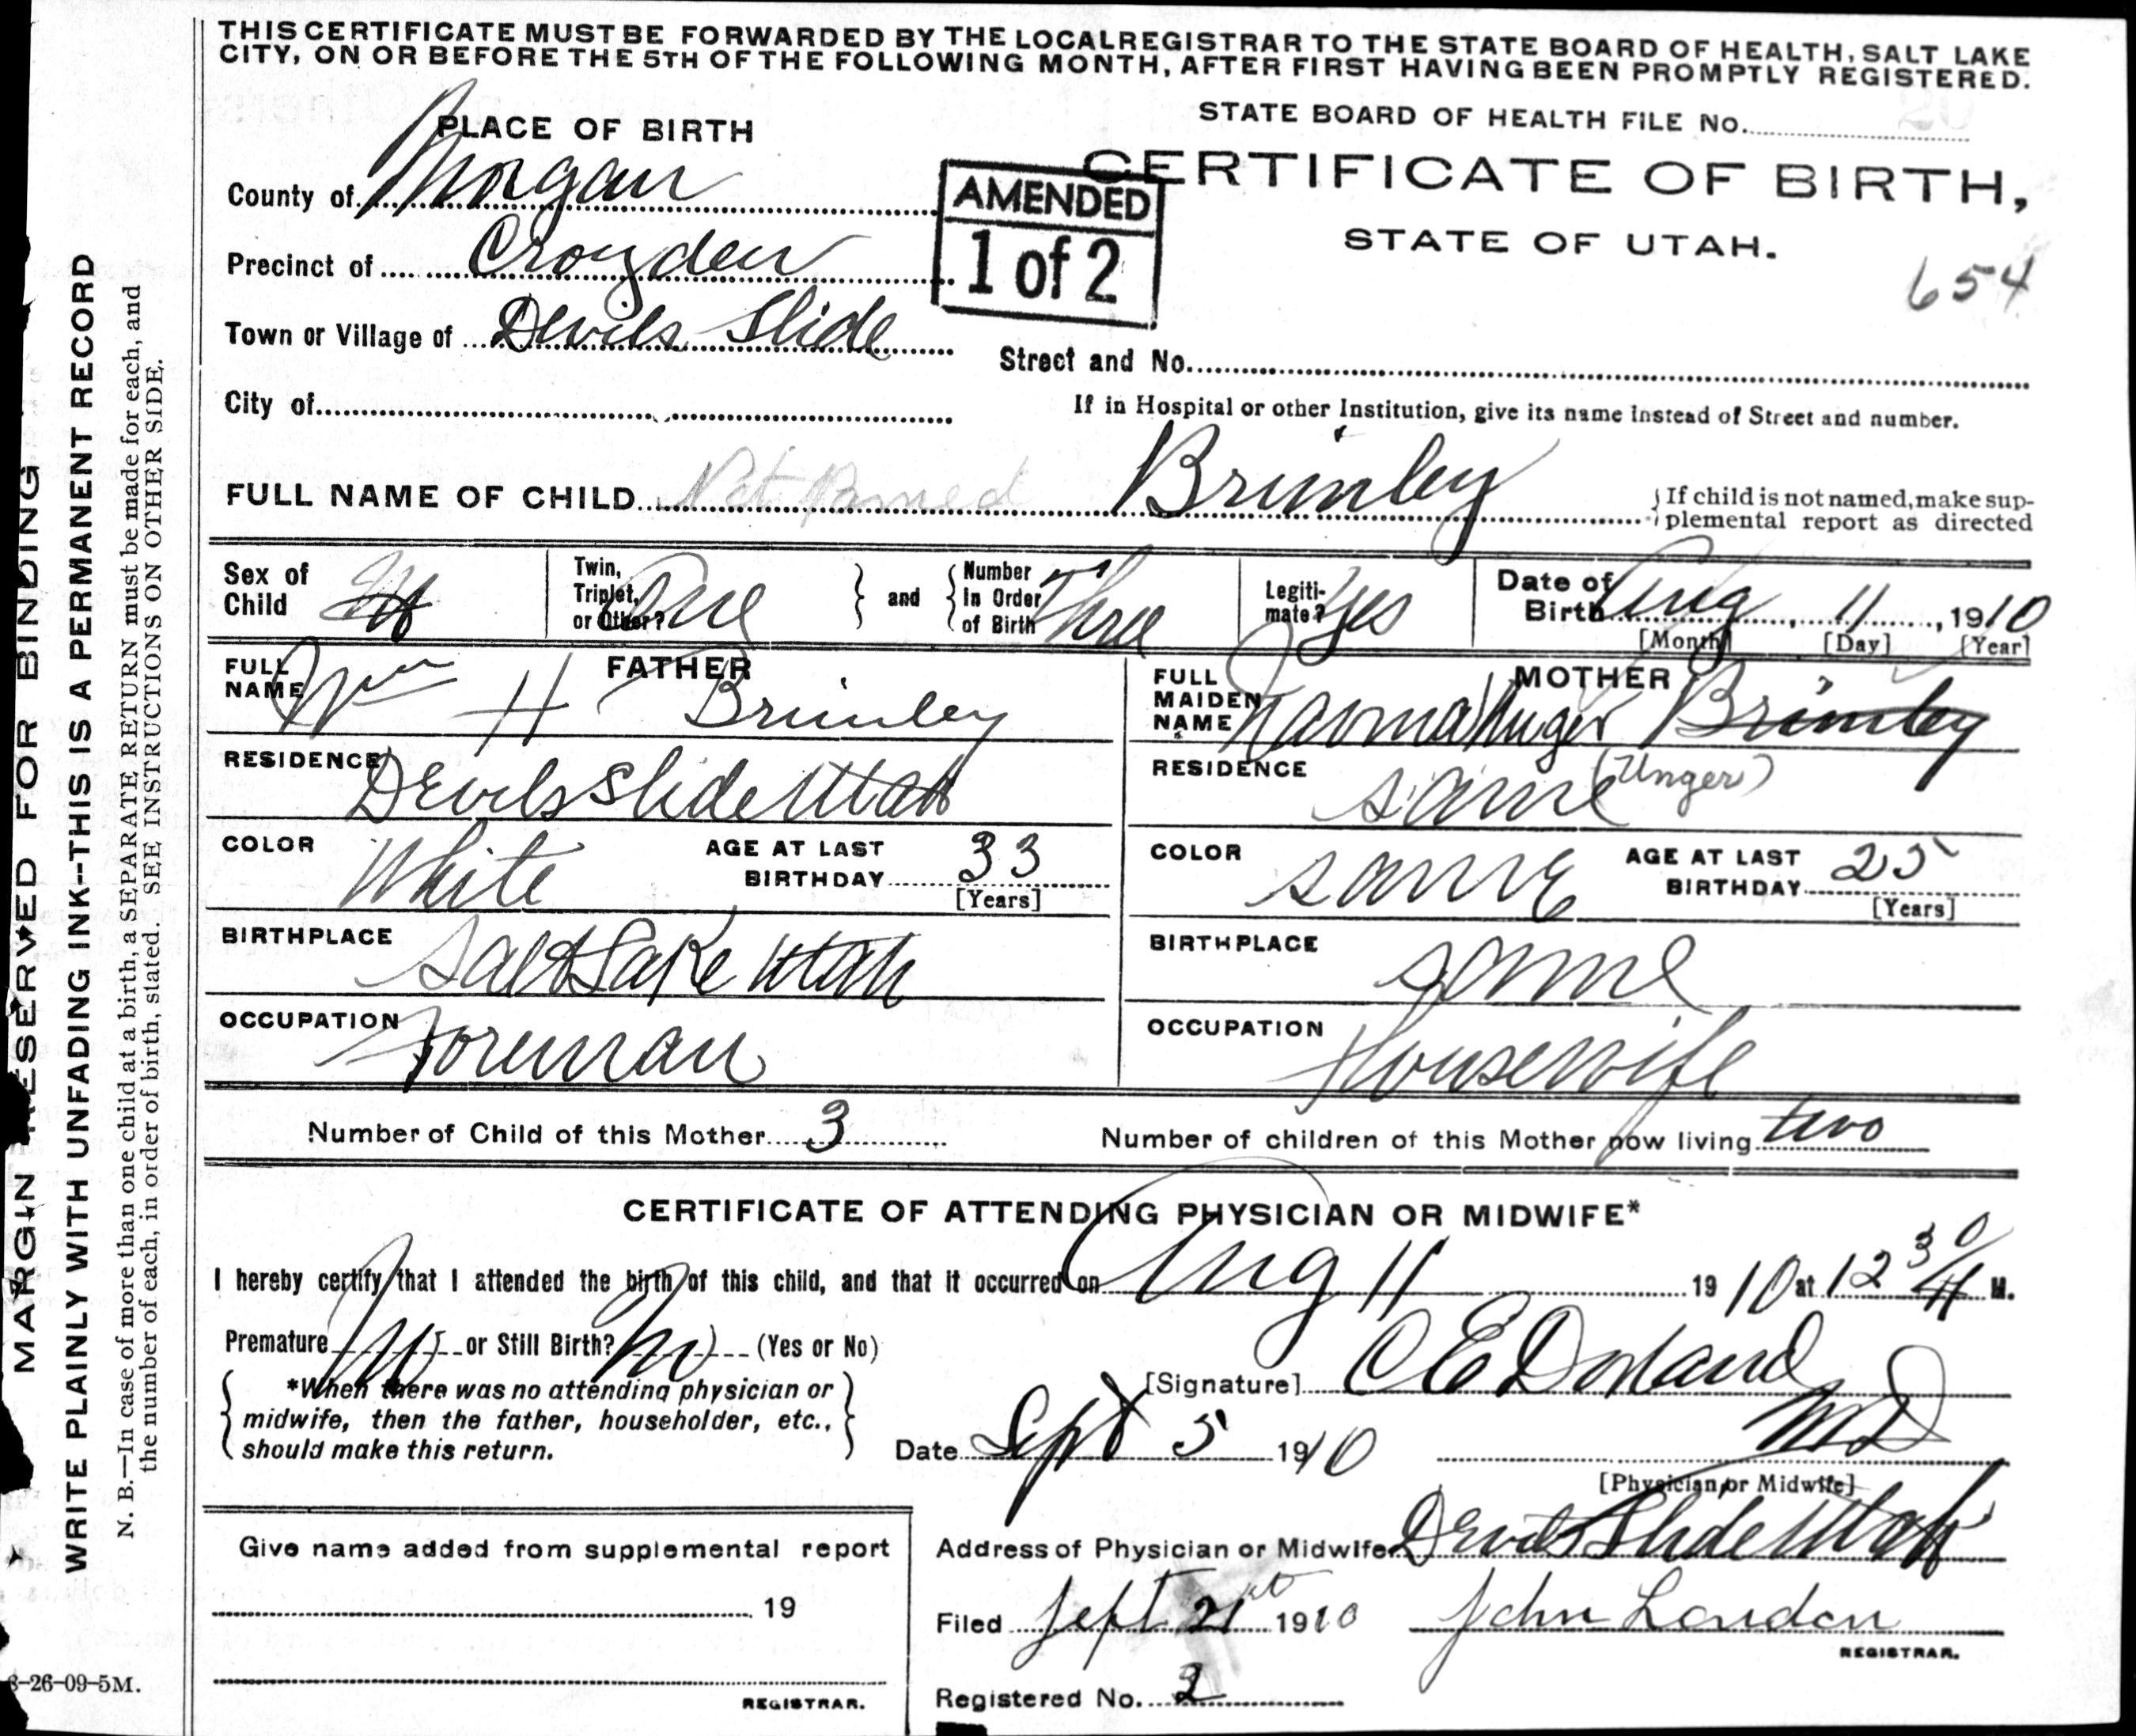 THIS CERTIFICATE MUST BE FORWARDED BY THE LOCAL REGISTRAR TO THE STATE BOARD OF HEALTH, SALT LAKE
CITY, ON OR BEFORE THE 5TH OF THE FOLLOWING MONTH, AFTER FIRST HAVING BEEN PROMPTLY REGISTERED.
STATE BOARD OF HEALTH FILE No.
PLACE OF BIRTH
CERTIFICATE OF BIRTH,
STATE OF UTAH.
654
AMENDED
1 of 2
County of Morgan
Precinct of Croyden
Town or Village of Devils Slide
Street and No.
City of
If in Hospital or other Institution, give its name instead of Street and number.
FULL NAME OF CHILD Not Named Brimley
{If child is not named, make sup-
plemental report as directed
Sex of Child
Twin, Triplet, or Other? One } and { Number In Order of Birth Three
Legiti-mate? Yes
Date of Birth Aug 11, 1910
[Month] [Day] [Year]
FATHER
FULL NAME Wm H Brimley
MOTHER
FULL MAIDEN NAME Brimley
(Unger)
RESIDENCE Devils Slide Utah
RESIDENCE same
COLOR White
AGE AT LAST BIRTHDAY 33
[Years]
COLOR same
AGE AT LAST BIRTHDAY 25
[Years]
BIRTHPLACE Salt Lake Utah
BIRTHPLACE same
OCCUPATION Foreman
OCCUPATION Housewife
Number of Child of this Mother 3
Number of children of this Mother now living two
CERTIFICATE OF ATTENDING PHYSICIAN OR MIDWIFE*
I hereby certify that I attended the birth of this child, and that it occurred on Aug 11 1910 at 12 30 M.
Premature No or Still Birth? No (Yes or No)
{ *When there was no attending physician or
midwife, then the father, householder, etc.,
should make this return. }
[Signature] C E
Date Sept 5 1910
MD
[Physician or Midwife]
Address of Physician or Midwife Devils Slide Utah
Filed Sept 21st 1910
John London
REGISTRAR.
Registered No. 2
Give name added from supplemental report
19
REGISTRAR.
MARGIN RESERVED FOR BINDING
WRITE PLAINLY WITH UNFADING INK--THIS IS A PERMANENT RECORD
N. B.—In case of more than one child at a birth, a SEPARATE RETURN must be made for each, and
the number of each, in order of birth, stated. SEE INSTRUCTIONS ON OTHER SIDE.
-26-09-5M.